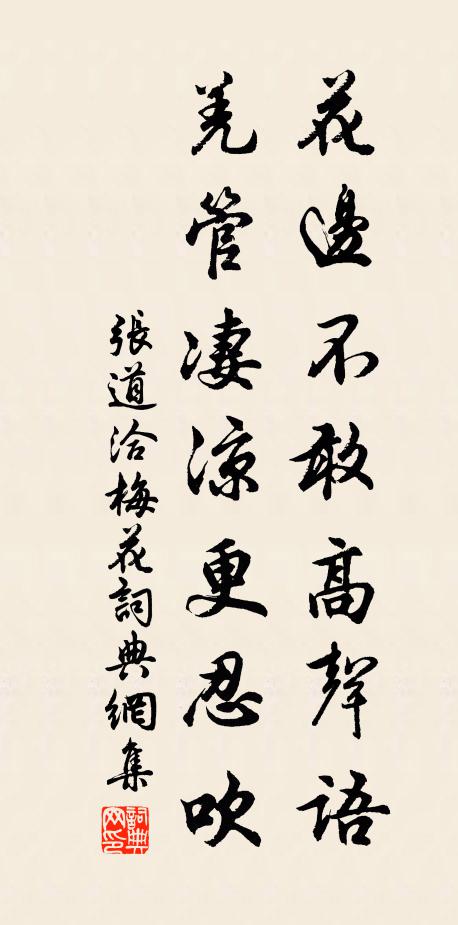 花邊不敢高聲語
羌管凄涼更忍吹
張道洽梅花詞典網集
詞典网印